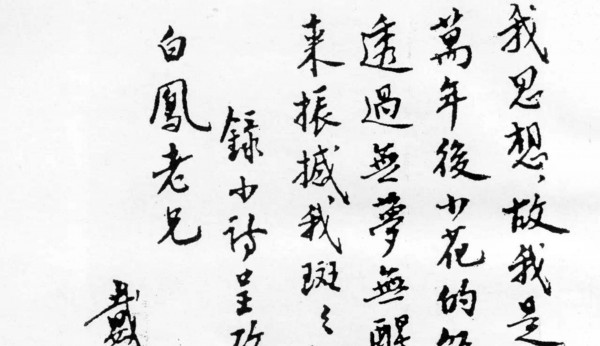 我思想,故我是
萬年後小花的
透過無夢無醒
来振撼我斑々
錄小詩呈
白鳳老兄
戴